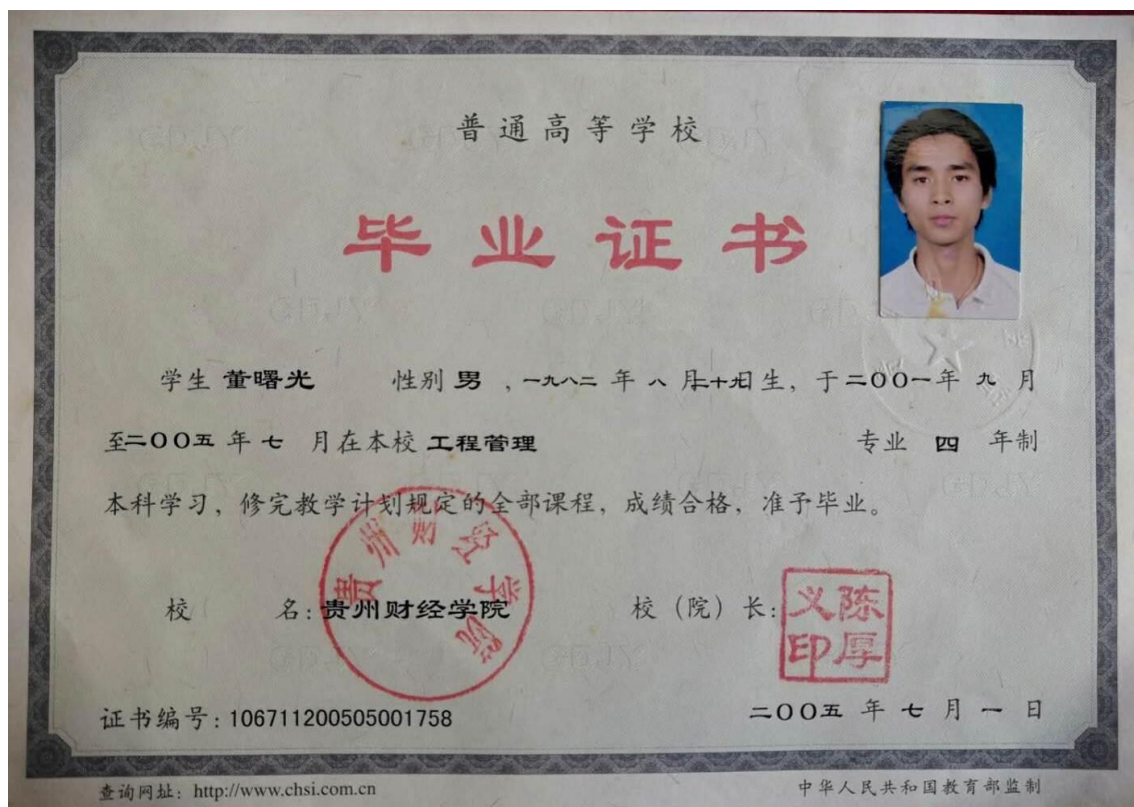 普通高等学校
毕业证书
学生 董曙光 性别 男 ，一九八二 年 八 月二十九日生，于二〇〇一年 九 月
至二〇〇五 年 七 月在本校 工程管理 专业 四 年制
本科学习，修完教学计划规定的全部课程，成绩合格，准予毕业。
贵州财经学院
校 名：贵州财经学院 校（院）长：
陈厚义印
证书编号：106711200505001758 二〇〇五 年 七 月 一 日
查询网址：http://www.chsi.com.cn 中华人民共和国教育部监制